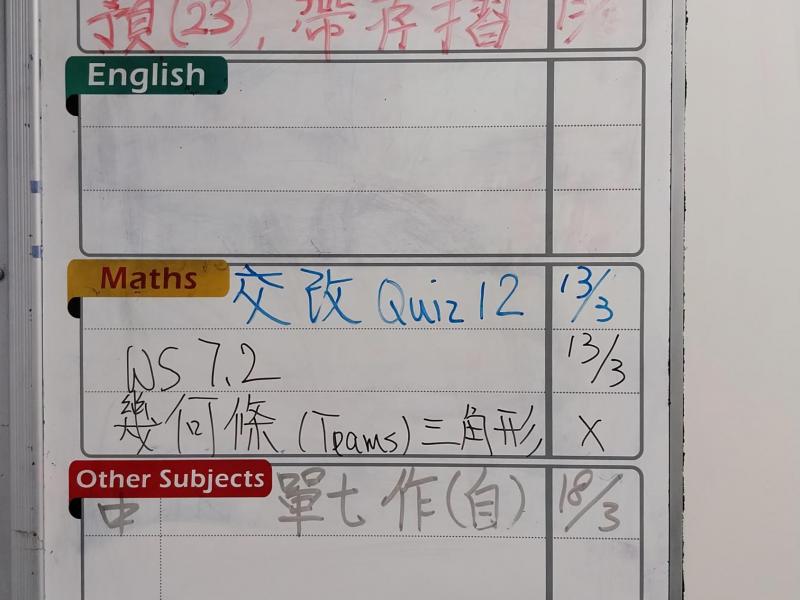 預(23), 帶存摺
English
Maths 交改 Quiz 12 13/3
WS 7.2 13/3
幾何條 (Teams) 三角形 X
Other Subjects
中 單七作(自) 18/3